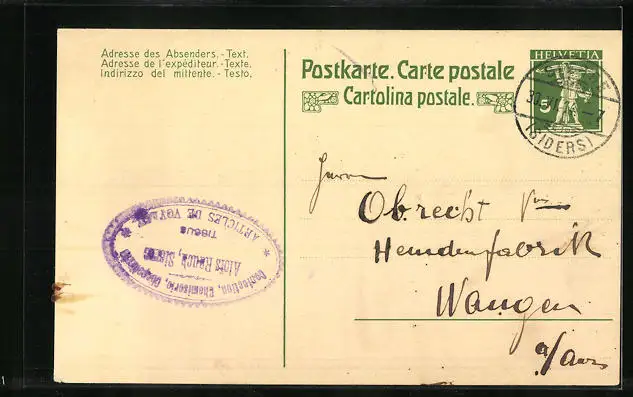 Adresse des Absenders.-Text.
Adresse de l'expéditeur.-Texte.
Indirizzo del mittente.-Testo.
Postkarte. Carte postale
Cartolina postale.
HELVETIA
5
SIERRE
(SIDERS)
Herrn
Obrecht
Hemdenfabrik
Wangen
a/Aare
Confection, Chemiserie,
Alois Rauch, Sierre
TISSUS
ARTICLES DE VOYAGE